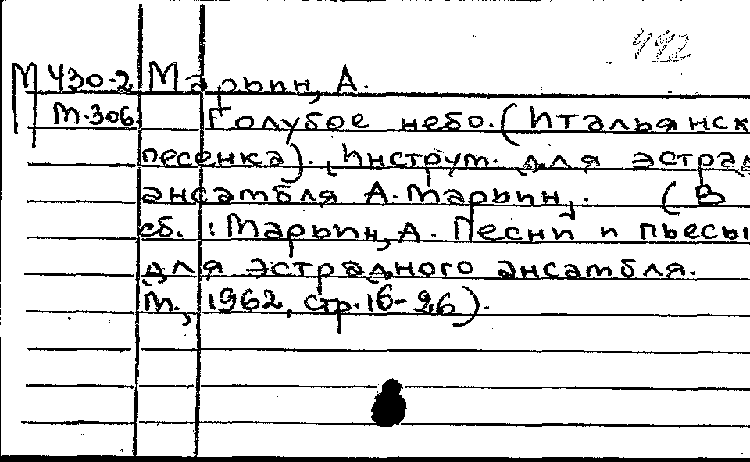 492
М 430-2 Марьин, А.
М.306 Голубое небо. (Итальянск
песенка). Инструм. для эстрад
ансамбля А. Марьин,. (В
сб. : Марьин, А. Песни и пьесы
для эстрадного ансамбля.
М., 1962, стр. 16-26).